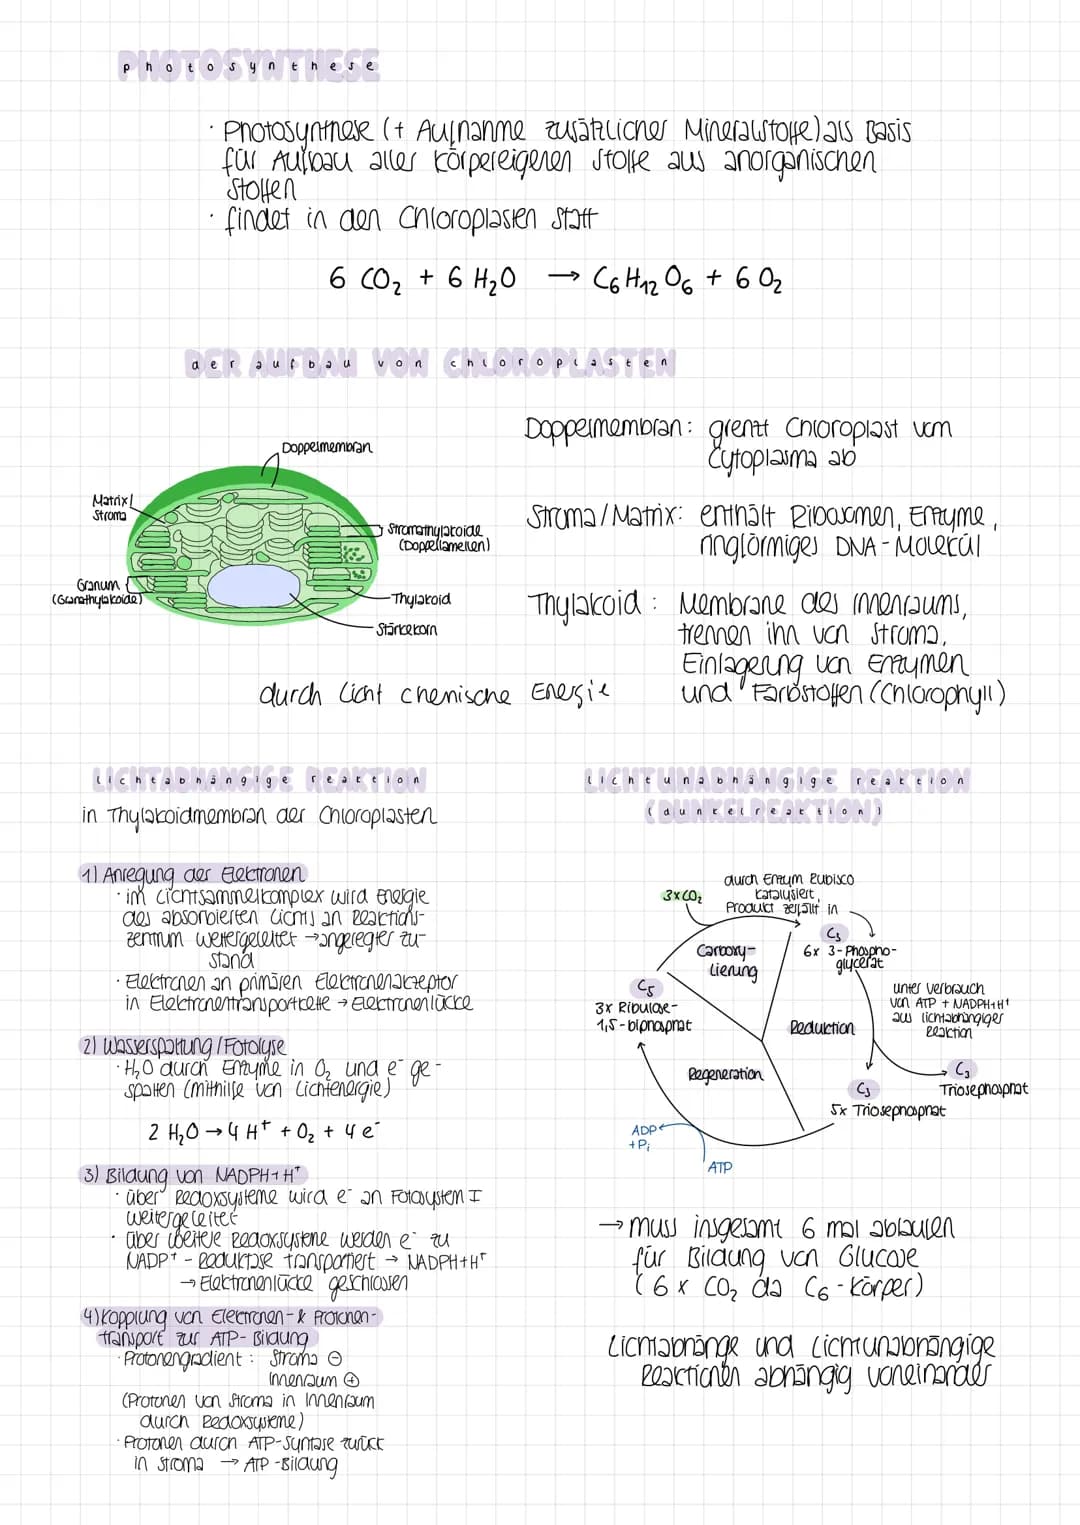 Photosynthese
· Photosynthese (+ Aufnahme zusätzlicher Mineralstoffe) als Basis
für Aufbau aller körpereigenen Stoffe aus anorganischen
Stoffen
· findet in den Chloroplasten statt
6 CO₂ + 6 H₂O → C₆H₁₂O₆ + 6 O₂
der Aufbau von Chloroplasten
Doppelmembran
Matrix/
Stroma
Stromathylakoide
(Doppellamellen)
Granum
(Granathylakoide)
Thylakoid
Stärkekorn
Doppelmembran: grenzt Chloroplast vom
Cytoplasma ab
Stroma/Matrix: enthält Ribosomen, Enzyme,
ringförmiges DNA-Molekül
Thylakoid: Membrane des Innenraums,
trennen ihn von Stroma,
Einlagerung von Enzymen
und Farbstoffen (Chlorophyll)
durch Licht chemische Energie
Lichtabhängige Reaktion
in Thylakoidmembran der Chloroplasten
1) Anregung der Elektronen
· im Lichtsammelkomplex wird Energie
des absorbierten Lichts an Reaktions-
zentrum weitergeleitet → angeregter Zu-
stand
· Elektronen an primären Elektronenakzeptor
in Elektronentransportkette → Elektronenlücke
2) Wasserspaltung/Fotolyse
· H₂O durch Enzyme in O₂ und e⁻ ge-
spalten (mithilfe von Lichtenergie)
2 H₂O → 4 H⁺ + O₂ + 4 e⁻
3) Bildung von NADPH+H⁺
· über Redoxsysteme wird e⁻ an Fotosystem I
weitergeleitet
· über weitere Redoxsysteme werden e⁻ zu
NADP⁺-Reduktase transportiert → NADPH+H⁺
→ Elektronenlücke geschlossen
4) Kopplung von Elektronen- & Protonen-
transport zur ATP-Bildung
· Protonengradient: Stroma ⊖
Innenraum ⊕
(Protonen von Stroma in Innenraum
durch Redoxsysteme)
· Protonen durch ATP-Syntase zurück
in Stroma → ATP-Bildung
Lichtunabhängige Reaktion
(Dunkelreaktion)
durch Enzym Rubisco
katalysiert,
Produkt zerfällt in
3×CO₂
C₃
6x 3-Phospho-
glycerat
Carboxy-
lierung
C₅
3x Ribulose-
1,5-biphosphat
unter Verbrauch
von ATP + NADPH+H⁺
aus lichtabhängiger
Reaktion
Reduktion
Regeneration
C₃
Triosephosphat
C₃
5x Triosephosphat
ADP
+ Pᵢ
ATP
→ muss insgesamt 6 mal ablaufen
für Bildung von Glucose
(6 x CO₂ da C₆-Körper)
Lichtabhänge und Lichtunabhängige
Reaktionen abhängig voneinander